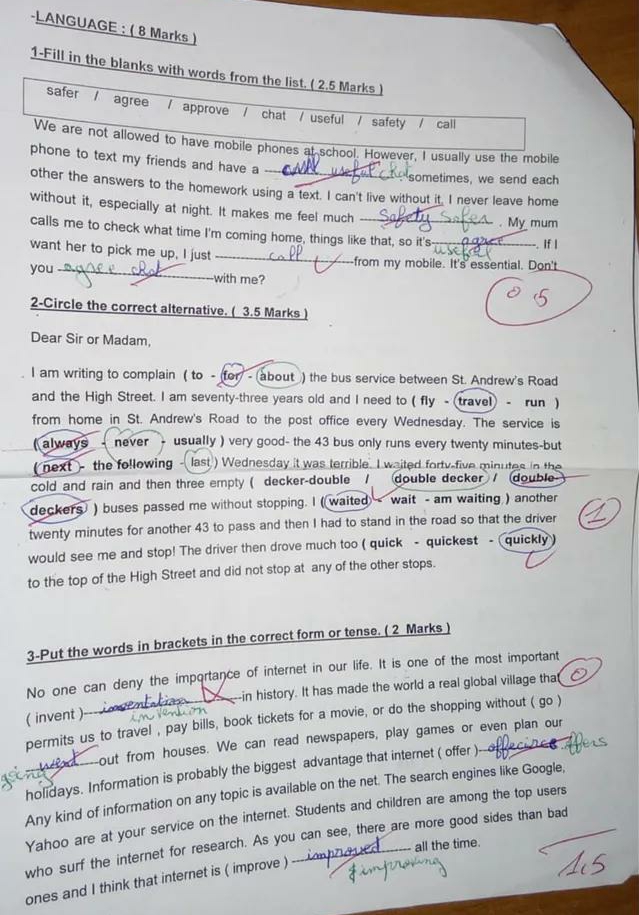 -LANGUAGE : ( 8 Marks )
1-Fill in the blanks with words from the list. ( 2.5 Marks )
safer / agree / approve / chat / useful / safety / call
We are not allowed to have mobile phones at school. However, I usually use the mobile
phone to text my friends and have a call useful chat sometimes, we send each
other the answers to the homework using a text. I can't live without it. I never leave home
without it, especially at night. It makes me feel much Safety Safer . My mum
calls me to check what time I'm coming home, things like that, so it's agree useful . If I
want her to pick me up, I just call from my mobile. It's essential. Don't
you agree chat with me?
0.5
2-Circle the correct alternative. ( 3.5 Marks )
Dear Sir or Madam,
I am writing to complain ( to - for - about ) the bus service between St. Andrew's Road
and the High Street. I am seventy-three years old and I need to ( fly - travel - run )
from home in St. Andrew's Road to the post office every Wednesday. The service is
( always - never - usually ) very good- the 43 bus only runs every twenty minutes-but
( next - the following - last ) Wednesday it was terrible. I waited forty-five minutes in the
cold and rain and then three empty ( decker-double / double decker / double-
deckers ) buses passed me without stopping. I ( waited - wait - am waiting ) another
1
twenty minutes for another 43 to pass and then I had to stand in the road so that the driver
would see me and stop! The driver then drove much too ( quick - quickest - quickly )
to the top of the High Street and did not stop at any of the other stops.
3-Put the words in brackets in the correct form or tense. ( 2 Marks )
No one can deny the importance of internet in our life. It is one of the most important
( invent ) inventation invention in history. It has made the world a real global village that
0
permits us to travel , pay bills, book tickets for a movie, or do the shopping without ( go )
going went out from houses. We can read newspapers, play games or even plan our
holidays. Information is probably the biggest advantage that internet ( offer ) offers
Any kind of information on any topic is available on the net. The search engines like Google,
Yahoo are at your service on the internet. Students and children are among the top users
who surf the internet for research. As you can see, there are more good sides than bad
ones and I think that internet is ( improve ) improved improving all the time.
1,5